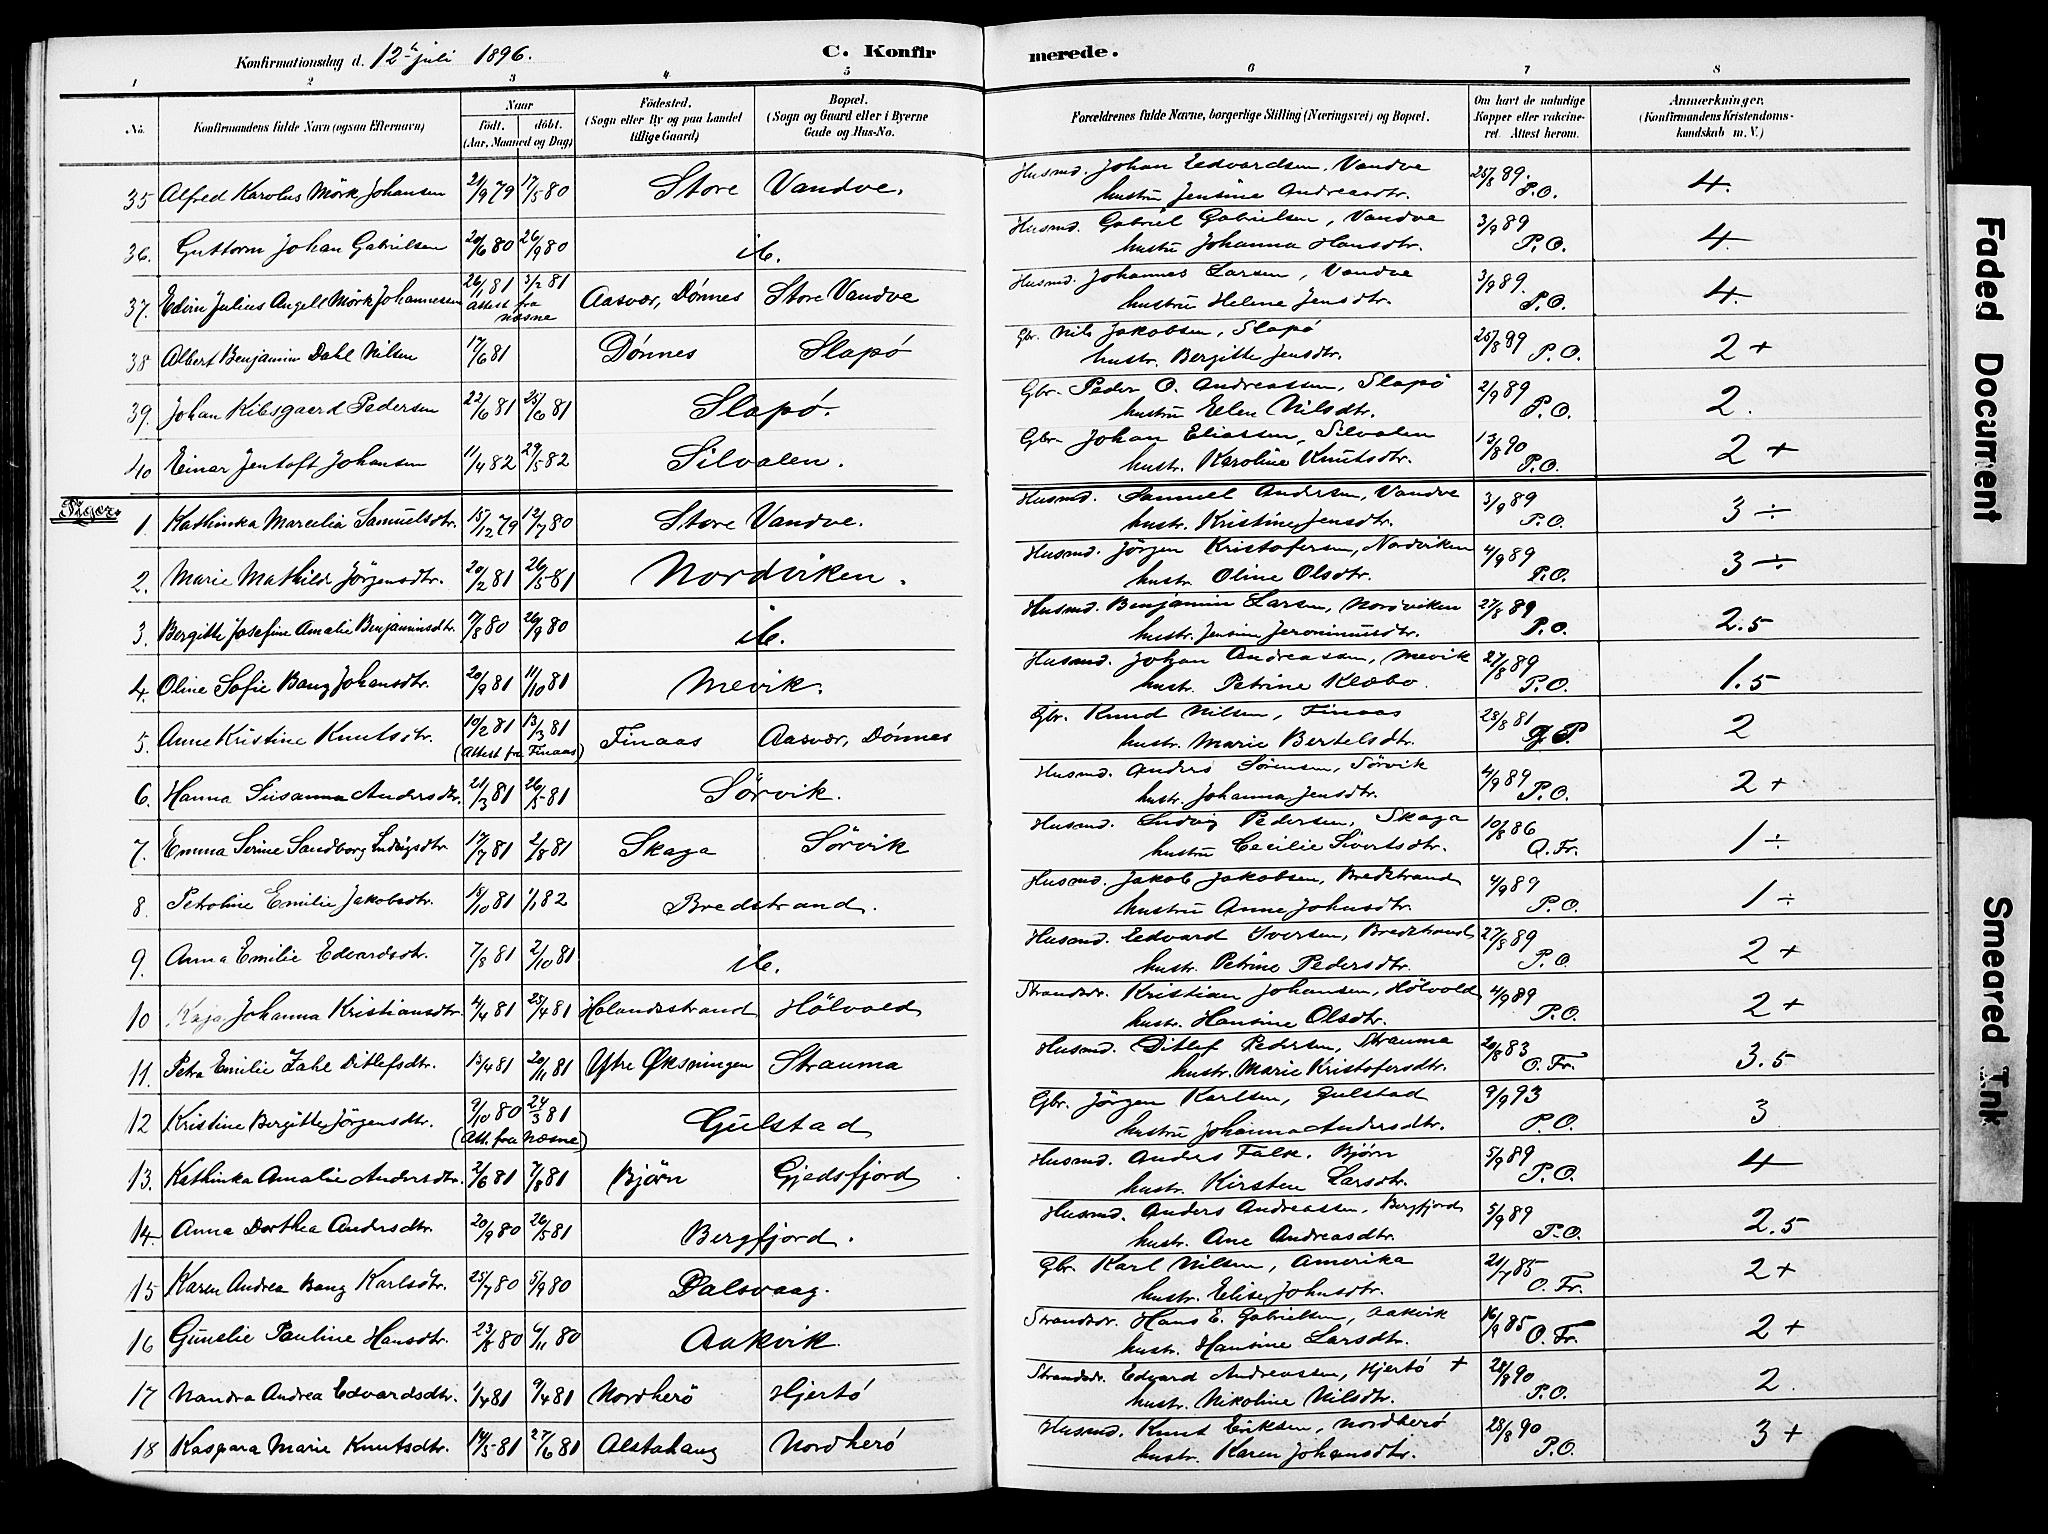 Konfirmationsdag d. 12te juli 1896. C. Konfirmerede.
1 2 3 4 5 6 7 8
No. Konfirmandens fulde Navn (ogsaa Efternavn) Naar Födt. döbt. (Aar, Maaned og Dag) Födested. (Sogn eller By og paa Landet tillige Gaard) Bopæl. (Sogn og Gaard eller i Byerne Gade og Hus-No. Forældrenes fulde Navne, borgerlige Stilling (Næringsvei) og Bopæl. Om havt de naturlige Kopper eller vakcineret. Attest herom. Anmærkninger. (Konfirmandens Kristendomskundskab m. V.)
35 Alfred Karolus Mörk Johansen 21/9 79 17/5 80 Store Vandve. Husmd. Johan Edvardsen, Vandve
hustru Jensine Andreasdtr. 25/8 89. P.O. 4.
36. Guttorm Johan Gabrielsen 20/6 80 26/9 80 ib. Husmd. Gabriel Gabrielsen, Vandve
hustru Johanna Hansdtr. 3/9 89 P.O. 4.
37. Edvin Julius Angell Mörk Johannesen 26/1 81 3/2 81 Attest fra Næsne Aasvær, Dønnes Store Vandve Husmd. Johannes Larsen, Vandve
hustru Helene Jensdtr. 3/9 89. P.O. 4.
38 Albert Benjamin Dahl Nilsen 17/6 81 Dønnes Slapö Gbr. Nils Jakobsen, Slapö
hustr. Bergitte Jensdtr. 25/8 99 P.O. 2 +
39. Johan Kibsgaard Pedersen 22/6 81 25/6 81 Slapö. Gbr. Peder O. Andreassen, Slapö
hustru Ellen Nilsdtr. 2/9 89 P.O. 2.
40 Einar Jentoft Johansen 11/4 82 29/5 82 Silvalen. Gbr. Johan Eliassen, Silvalen
hustr. Karoline Knutsdtr. 13/8 90 P.O. 2 +
Piger.
1. Kathinka Marcelia Samuelsdtr. 15/12 79 12/7 80 Store Vandve. Husmd. Samuel Andersen, Vandve
hustr. Kristine Jensdtr. 3/9 89 P.O. 3 ÷
2. Marie Mathilde Jörgensdtr. 20/2 81 26/5 81 Nordviken. Husmd. Jörgen Kristofersen, Nordviken
hustr. Oline Olsdtr. 4/9 89 P.O. 3 ÷
3. Bergitte Josefine Amalie Benjaminsdtr. 7/8 80 26/9 80 ib. Husmd. Benjamin Larsen, Nordviken
hustr. Jensine Jeronimusdtr. 27/8 89 P.O. 2.5
4. Oline Sofie Bang Johansdtr. 20/9 81 11/10 81 Mevik. Husmd. Johan Andreassen, Mevik
hustr. Petrine Klæbo. 27/8 89 P.O. 1.5
5. Anne Kristine Knutsdtr. 10/2 81 13/3 81 (Attest fra Finaas) Finaas Aasvær, Dønnes Gbr. Knud Nilsen, Finaas
hustr. Marie Bertelsdtr. 28/8 81 2
6. Hanna Susanna Andersdtr. 21/3 81 26/5 81 Sörvik. Husmd. Anders Sörensen, Sörvik
hustr. Johanna Jensdtr. 4/9 89 P.O. 2 +
7. Emma Serine Sandborg Ludvigsdtr 17/7 81 2/8 81 Skaga Sörvik Husmd. Ludvig Pedersen, Skaga
hustru Cecilie Sivertsdtr. 10/8 86 O.Fr. 1 ÷
8. Petroline Emilie Jakobsdtr. 18/10 81 1/1 82 Bredstrand. Husmd. Jakob Jakobsen, Bredstrand
hustru Anne Johnsdtr. 4/9 89 P.O. 1 ÷
9. Anna Emilie Edvardsdtr. 7/8 81 2/10 81 ib. Husmd. Edvard Iversen, Bredstrand
hustr. Petrine Pedersdtr. 27/8 89 P.O. 2 +
10 Kaja Johanna Kristiansdtr. 4/4 81 25/4 81 Holandsstrand Hölvold Strandsdr. Kristian Johansen, Hölvold
hustr. Hansine Olsdtr. 4/9 89 P.O. 2 +
11. Petra Emilie Zahl Ditlefsdtr. 13/4 81 20/11 81 Yttre Øksningen Strauma Husmd. Ditlef Pedersen, Strauma
hustr. Marie Kristofersdtr. 20/8 83 O.Fr. 3.5
12 Kristine Bergitte Jörgensdtr. 9/10 80 24/3 81 (Att. fra Næsne) Gulstad Gbr. Jörgen Karlsen, Gulstad
hustru Johanna Andersdtr. 9/9 93 P.O. 3
13. Kathinka Amalie Andersdtr. 2/6 81 7/8 81 Bjørn Gjedsfjord. Husmd. Anders Falk. Bjørn
hustr. Kirsten Larsdtr. 5/9 89 P.O. 4
14. Anna Dorthea Andersdtr. 20/9 80 26/5 81 Bergfjord. Husmd. Anders Andreassen, Bergfjord
hustr. Ane Andreasdtr. 5/9 89 P.O. 2.5
15 Karen Andrea Bang Karlsdtr. 25/7 80 5/9 80 Dalsvaag. Gbr. Karl Nilsen, Amerika
hustr. Elise Johnsdtr. 21/7 85 O.Fr. 2 +
16 Gunelie Pauline Hansdtr. 23/8 80 6/11 80 Aakvik. Strandsdr. Hans E. Gabrielsen, Aakvik
hustr. Hansine Larsdtr. 16/9 85 O.Fr. 2 +
17 Nandra Andrea Edvardsdtr. 1/4 81 9/4 81 Nordherö Hjertö Strandsdr. Edvard Andreassen, Hjertö +
hustr. Nikoline Nilsdtr. 28/8 90 P.O. 2.
18 Kaspara Marie Knutsdtr. 14/5 81 27/6 81 Alstahaug Nordherö Husmd. Knut Eriksen, Nordherö
hustr. Karen Johansdtr. 28/8 90 P.O. 3 +
Faded Document
Smeared Ink